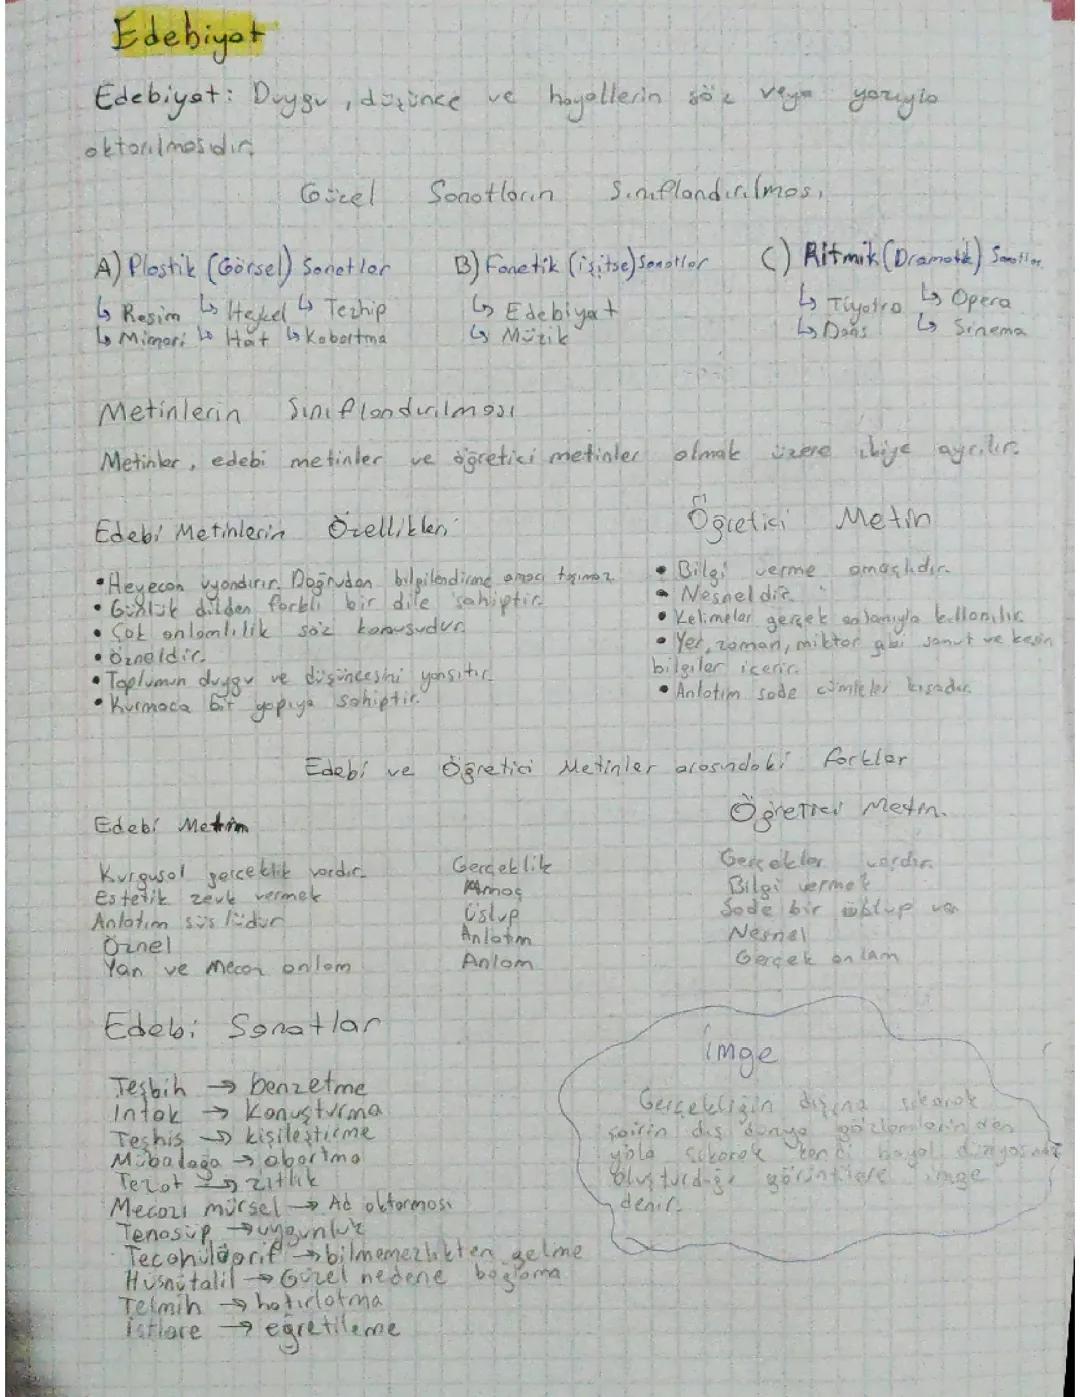 Edebiyat
Edebiyat: Duygu, düşünce ve hayallerin söz veya yazıyla
aktarılmasıdır.
Güzel Sanatların Sınıflandırılması
A) Plastik (Görsel) Sanatlar
↳ Resim ↳ Heykel ↳ Tezhip
↳ Mimari ↳ Hat ↳ Kabartma
B) Fonetik (işitse) Sanatlar
↳ Edebiyat
↳ Müzik
C) Ritmik (Dramatik) Sanatlar
↳ Tiyatro ↳ Opera
↳ Dans ↳ Sinema
Metinlerin Sınıflandırılması
Metinler, edebi metinler ve öğretici metinler olmak üzere ikiye ayrılır.
Edebi Metinlerin Özellikleri
• Heyecan uyandırır. Doğrudan bilgilendirme amacı taşımaz
• Günlük dilden farklı bir dile sahiptir.
• Çok anlamlılık söz konusudur.
• Özneldir.
• Toplumun duygu ve düşüncesini yansıtır.
• Kurmaca bir yapıya sahiptir.
Öğretici Metin
• Bilgi verme amaçlıdır.
• Nesneldir.
• Kelimeler gerçek anlamıyla kullanılır.
• Yer, zaman, miktar gibi somut ve kesin
bilgiler içerir.
• Anlatım sade cümleler kısadır.
Edebi ve Öğretici Metinler arasındaki farklar
Edebi Metin
Öğretici Metin
Kurgusal gerçeklik vardır. Gerçeklik Gerçekler vardır.
Estetik zevk vermek Amaç Bilgi vermek
Anlatım süslüdür Üslup Sade bir üslup var
Öznel Anlatım Nesnel
Yan ve Mecaz anlam Anlam Gerçek anlam
Edebi Sanatlar
Teşbih → benzetme
İntak → Konuşturma
Teşhis → kişileştirme
Mübalağa → abartma
Tezat → zıtlık
Mecazı mürsel → Ad aktarması
Tenasüp → uygunluk
Tecahülüarif → bilmemezlikten gelme
Hüsnütalil → Güzel nedene bağlama
Telmih → hatırlatma
İstiare → eğretileme
İmge
Gerçekliğin dışına çıkarak
şairin dış dünya gözlemlerinden
yola çıkarak kendi hayal dünyasında
oluşturduğu görüntülere imge
denir.